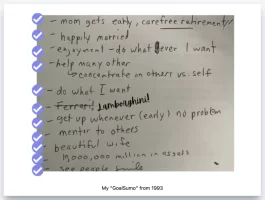 - mom gets early, carefree retirement
- happily married
- enjoyment - do what ever I want
- help many other
↳ concentrate on others vs. self
- do what I want
- Ferrari Lamborghini!
- get up whenever (early) no problem
- mentor to others
- beautiful wife
million in assets
- see people smile
My "GoalSumo" from 1993